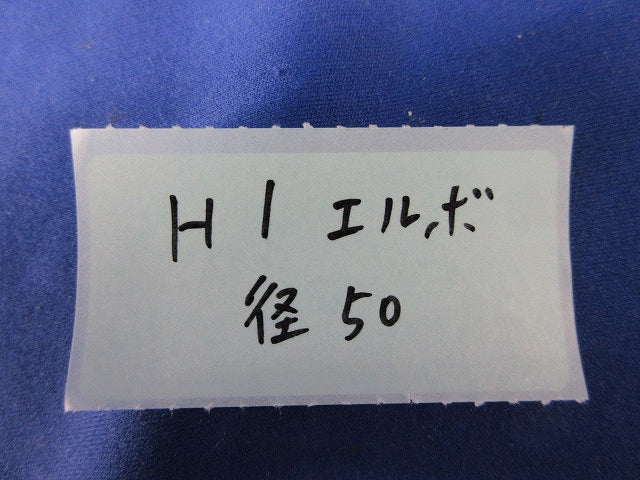 HI エルボ
径 50